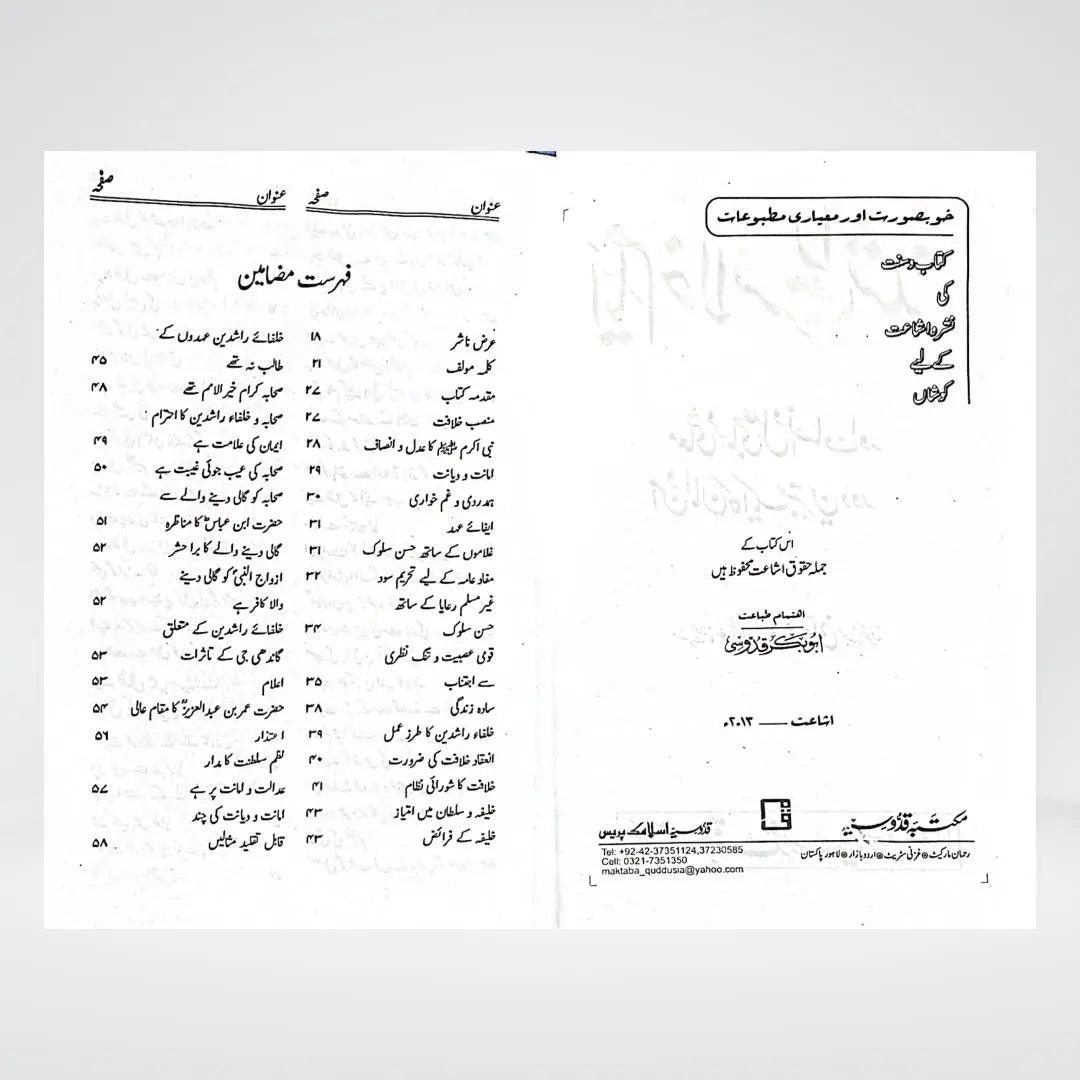 خوبصورت اور معیاری مطبوعات
کتاب و سنت
کی
نشر و اشاعت
کے لیے
کوشاں
اس کتاب کے
جملہ حقوق اشاعت محفوظ ہیں
اهتمام طباعت
ابوبکر قدوسی
اشاعت —— ۲۰۱۳ء
مکتبہ قدوسیہ
قدوسیہ اسلامک پریس
رحمان مارکیٹ ● غزنی سٹریٹ ● اردو بازار ● لاہور پاکستان
Tel: +92-42-37351124,37230585
Cell: 0321-7351350
maktaba_quddusia@yahoo.com
عنوان صفحہ
فہرست مضامین
عرض ناشر ۱۸
کلمہ مولف ۲۱
مقدمہ کتاب ۲۷
منصب خلافت ۲۷
نبی اکرم ﷺ کا عدل و انصاف ۲۸
امانت و دیانت ۲۹
ہمدردی و غم خواری ۳۰
ایفائے عہد ۳۱
غلاموں کے ساتھ حسن سلوک ۳۱
مفاد عامہ کے لیے تحریم سود ۳۲
غیر مسلم رعایا کے ساتھ
حسن سلوک ۳۴
قومی عصبیت و تنگ نظری
سے اجتناب ۳۵
سادہ زندگی ۳۸
خلفاء راشدین کا طرز عمل ۳۹
انعقاد خلافت کی ضرورت ۴۰
خلافت کا شورائی نظام ۴۱
خلیفہ و سلطان میں امتیاز ۴۳
خلیفہ کے فرائض ۴۳
عنوان صفحہ
خلفائے راشدین عہدوں کے
طالب نہ تھے ۴۵
صحابہ کرام خیر الامم تھے ۴۸
صحابہ و خلفاء راشدین کا احترام
ایمان کی علامت ہے ۴۹
صحابہ کی عیب جوئی غیبت ہے ۵۰
صحابہ کو گالی دینے والے سے
حضرت ابن عباسؓ کا مناظرہ ۵۱
گالی دینے والے کا برا حشر ۵۲
ازواج النبیؐ کو گالی دینے
والا کافر ہے ۵۲
خلفائے راشدین کے متعلق
گاندھی جی کے تاثرات ۵۳
اعلام ۵۳
حضرت عمر بن عبدالعزیزؒ کا مقام عالی ۵۴
اعتذار ۵۶
نظم سلطنت کا مدار
عدالت و امانت پر ہے ۵۷
امانت و دیانت کی چند
قابل تقلید مثالیں ۵۸